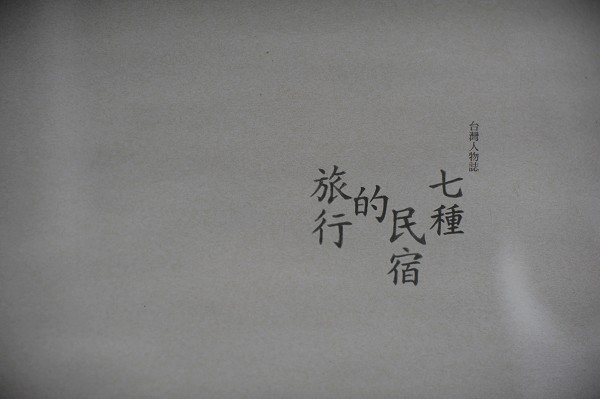 台灣人物誌
七種
民宿
的
旅行